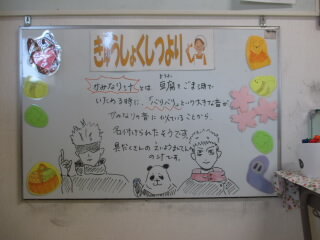 きゅうしょくしつより
かみなり汁とは 豆腐をごま油で
とうふ
いためる時に、「バリバリ」という大きな音が
かみなりの音に似ていることから
名付けられたそうです。
具だくさんの えいようまんてん
の汁です。